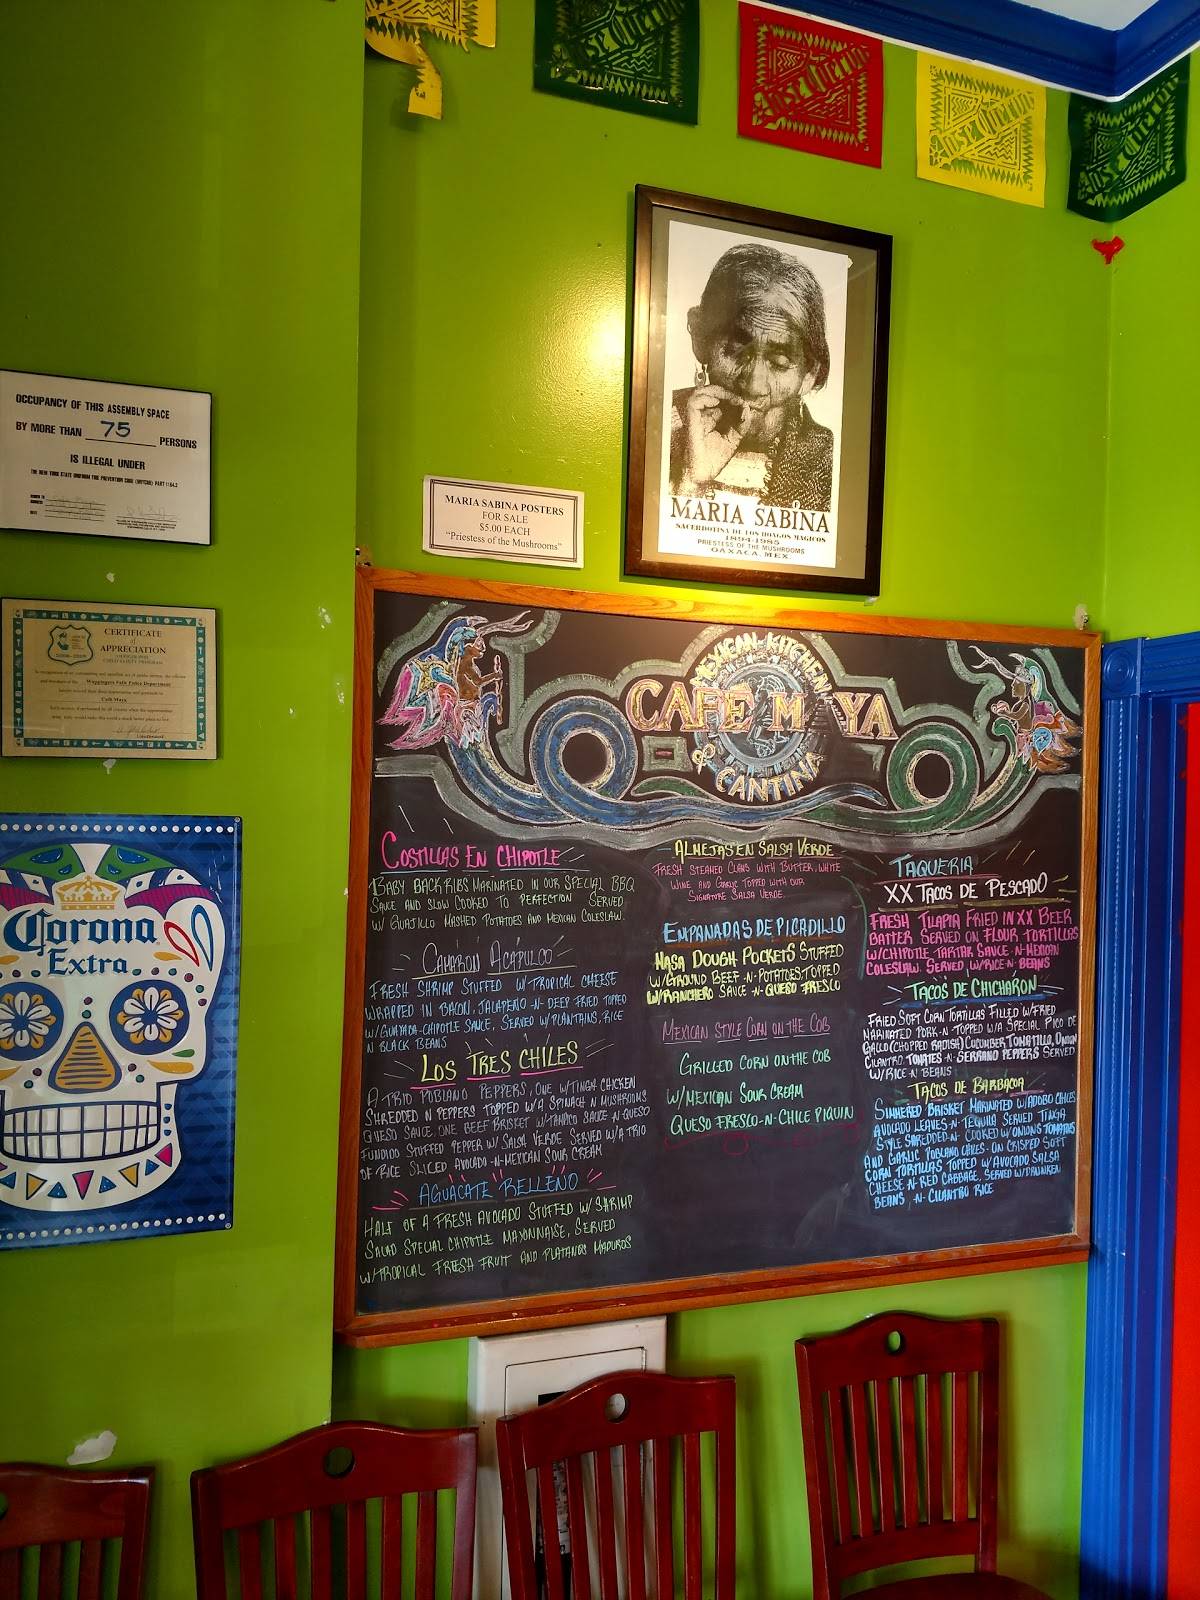 JOSE CUERVO
JOSE CUERVO
JOSE CUERVO
JOSE CUERVO
OCCUPANCY OF THIS ASSEMBLY SPACE
BY MORE THAN 75 PERSONS
IS ILLEGAL UNDER
THE NEW YORK STATE UNIFORM FIRE PREVENTION CODE
CERTIFICATE
of
APPRECIATION
CHILD SAFETY PROGRAM
Wappingers Falls Police Department
Café Maya
Corona
Extra
MARIA SABINA POSTERS
FOR SALE
$5.00 EACH
"Priestess of the Mushrooms"
MARIA SABINA
SACERDOTINA DE LOS HONGOS MAGICOS
1894-1985
PRIESTESS OF THE MUSHROOMS
OAXACA, MEX
MEXICAN KITCHEN
CAFÉ MAYA
& CANTINA
COSTILLAS EN CHIPOTLE
BABY BACK RIBS MARINATED IN OUR SPECIAL BBQ
SAUCE AND SLOW COOKED TO PERFECTION SERVED
W/ GUAJILLO MASHED POTATOES AND MEXICAN COLESLAW.
CAMARON ACAPULCO
FRESH SHRIMP STUFFED W/TROPICAL CHEESE
WRAPPED IN BACON, JALAPEÑO-N-DEEP FRIED TOPED
W/GUAYABA-CHIPOTLE SAUCE, SERVED W/PLANTAINS, RICE
N BLACK BEANS
LOS TRES CHILES
A TRIO POBLANO PEPPERS, ONE W/TINGA CHICKEN
SHREDDED N PEPPERS TOPPED W/A SPINACH N MUSHROOMS
QUESO SAUCE, ONE BEEF BRISKET W/TARASCO SAUCE-N-QUESO
FUNDIDO STUFFED PEPPER W/ SALSA VERDE SERVED W/A TRIO
OF RICE SLICED AVOCADO-N-MEXICAN SOUR CREAM
AGUACATE RELLENO
HALF OF A FRESH AVOCADO STUFFED W/ SHRIMP
SALAD SPECIAL CHIPOTLE MAYONNAISE, SERVED
W/TROPICAL FRESH FRUIT AND PLATANOS MADUROS
ALMEJAS EN SALSA VERDE
FRESH STEAMED CLAMS WITH BUTTER, WHITE
WINE AND GARLIC TOPPED WITH OUR
SIGNATURE SALSA VERDE.
EMPANADAS DE PICADILLO
MASA DOUGH POCKETS STUFFED
W/GROUND BEEF-N-POTATOES, TOPPED
W/RANCHERO SAUCE-N-QUESO FRESCO
MEXICAN STYLE CORN ON THE COB
GRILLED CORN ON THE COB
W/MEXICAN SOUR CREAM
QUESO FRESCO-N-CHILE PIQUIN
TAQUERIA
XX TACOS DE PESCADO
FRESH TILAPIA FRIED IN XX BEER
BATTER SERVED ON FLOUR TORTILLAS
W/CHIPOTLE TARTAR SAUCE-N-MEXICAN
COLESLAW. SERVED W/RICE-N-BEANS
TACOS DE CHICHARON
FRIED SOFT CORN TORTILLAS FILLED W/FRIED
MARINATED PORK-N-TOPPED W/A SPECIAL PICO DE
GALLO (CHOPPED RADISH) CUCUMBER, TOMATILLO, ONION
CILANTRO, TOMATES-N-SERRANO PEPPERS SERVED
W/RICE-N BEANS
TACOS DE BARBACOA
SIMMERED BRISKET MARINATED W/ADOBO CHILES
AVOCADO LEAVES-N-TEQUILA SERVED TINGA
STYLE SHREDDED-N-COOKED W/ONIONS TOMATOES
AND GARLIC POBLANO CHILES-ON CRISPED SOFT
CORN TORTILLAS TOPPED W/AVOCADO SALSA
CHEESE-N-RED CABBAGE, SERVED W/DRUNKEN
BEANS -N-CILANTRO RICE